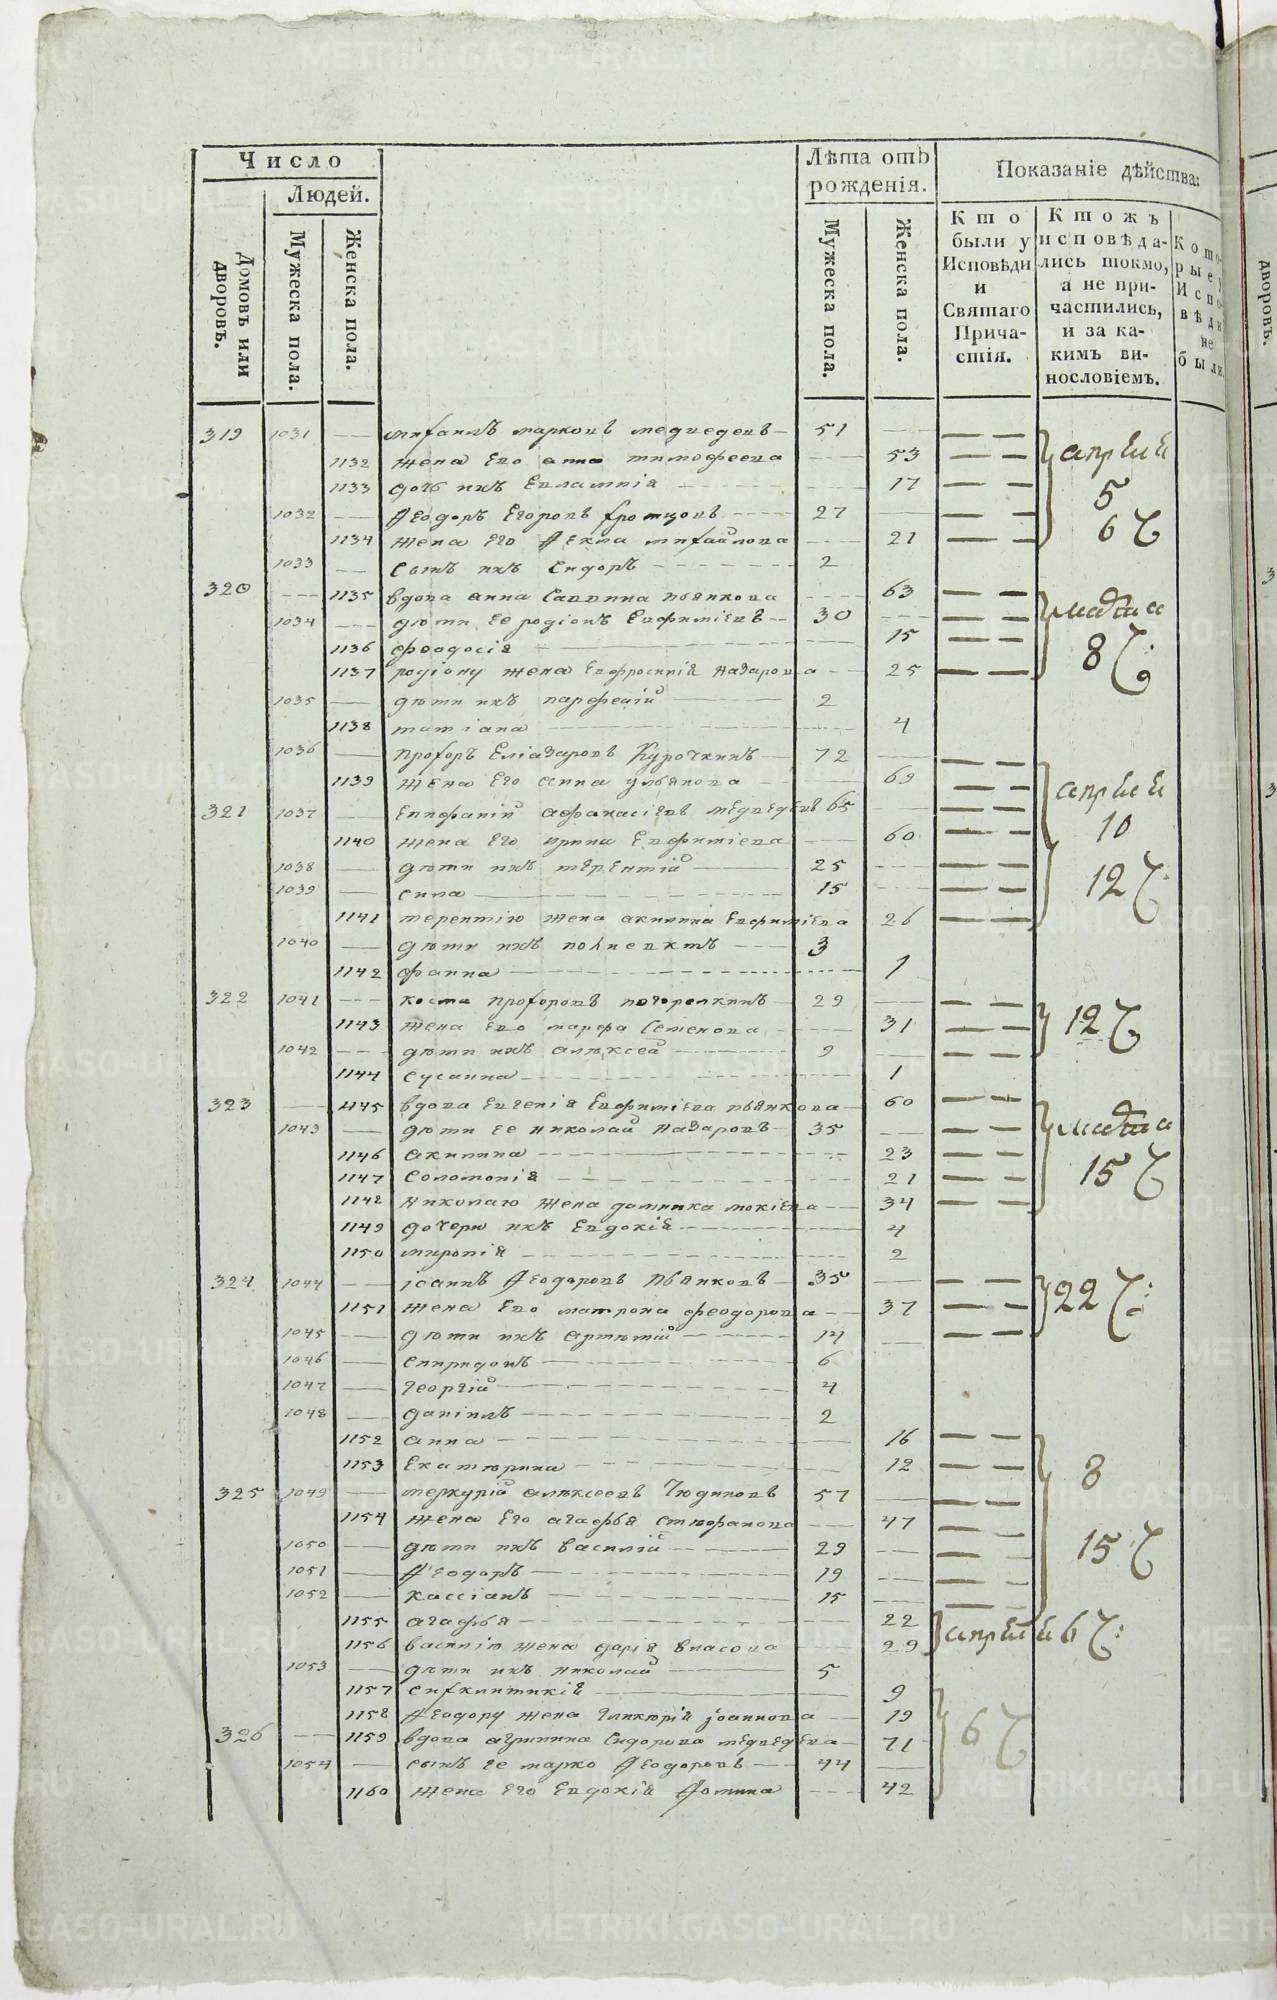 Число
Людей.
Домовъ или дворовъ.
Мужеска пола.
Женска пола.
Лѣта отъ рожденія.
Мужеска пола.
Женска пола.
Показаніе дѣйства:
Кто были у Исповѣди и Святаго Причастія.
Ктожъ исповѣдались токмо, а не причастились, и за какимъ винословіемъ.
Которые у Исповѣди не были.
319 1031 — михаилъ марковъ медведевъ 51
1132 жена его анна тимофеева 53
1133 дочь ихъ Евлампія 17
1032 — Ѳеодоръ Егоровъ 27
1134 жена его Ѳекла михайлова 21
1033 — сынъ ихъ Сидоръ 2
апрѣля 5 6
320 — 1135 вдова анна Саввина пьянкова 63
1034 — дѣти ее родіонъ Евфиміевъ 30
1136 феодосія 15
1137 родіону жена Евфросинія назарова 25
1035 — дѣти ихъ парфеній 2
1138 татіана 4
марта 8
1036 — прохоръ Еліазаровъ Курочкинъ 72
1139 жена Его анна ульянова 69
321 1037 — Епифаній афанасіевъ медведевъ 65
1140 жена Его ирина Евфиміева 60
1038 — дѣти ихъ терентій 25
1039 — сила 15
1141 терентію жена акилина Евфиміева 26
1040 — дѣти ихъ полиевктъ 3
1142 фаина 1
апрѣля 10 12
322 1041 — косма прохоровъ погорелкинъ 29
1143 жена Его марфа Семенова 31
1042 — дѣти ихъ алѣксей 9
1144 сусанна 1
12
323 — 1145 вдова Евгенія Евфиміева пьянкова 60
1043 — дѣти ее николай назаровъ 35
1146 акилина 23
1147 соломонія 21
1148 николаю жена домника мокіева 34
1149 дочери ихъ Евдокія 4
1150 миропія 2
марта 15
324 1044 — іоаннъ Ѳеодоровъ Пьянковъ 35
1151 жена Его матрона феодорова 37
1045 — дѣти ихъ артѣмій 14
1046 — спиридонъ 6
1047 — георгій 4
1048 — даніилъ 2
1152 анна 16
1153 Екатерина 12
22
325 1049 — меркурій алѣксеевъ Чюдиновъ 57
1154 жена Его агафья стефанова 47
1050 — дѣти ихъ василій 29
1051 — Ѳеодоръ 19
1052 — кассіанъ 15
1155 агафья 22
1156 василію жена дарія власова 29
1053 — дѣти ихъ николай 5
1157 синклитикія 9
1158 Ѳеодору жена гликерія іоаннова 19
8
15
апрѣля 6
326 — 1159 вдова агрипина Сидорова медведева 71
1054 — сынъ ее марко Ѳеодоровъ 44
1160 жена Его Евдокія Ѳомина 42
6
дворовъ.
METRIKI.GASO-URAL.RU